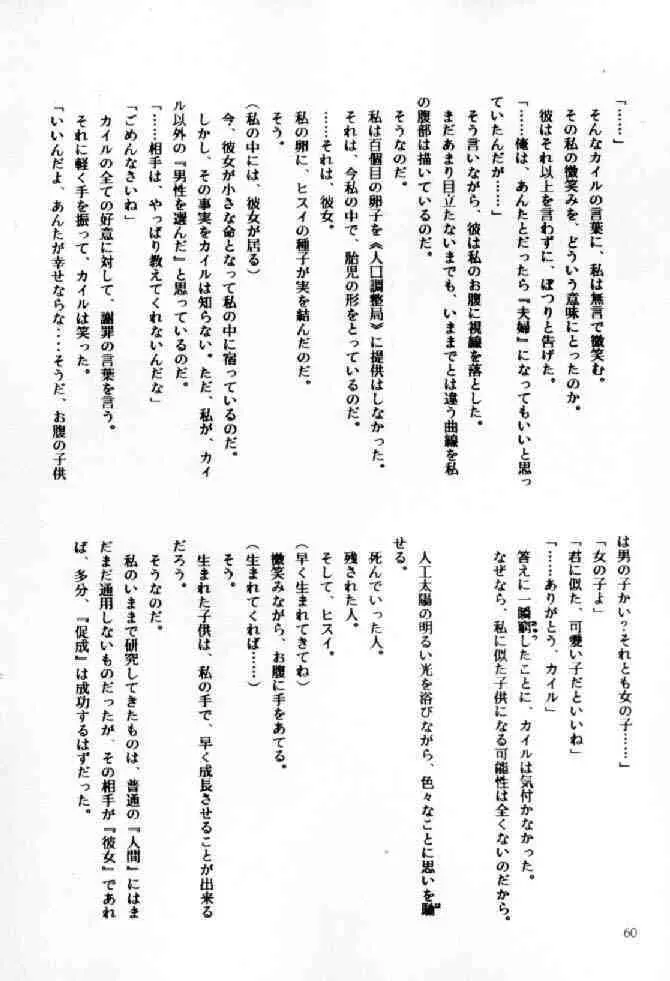 「……」
そんなカイルの言葉に、私は無言で微笑む。
その私の微笑みを、どういう意味にとったのか。
彼はそれ以上を言わずに、ぽつりと告げた。
「……俺は、あんたとだったら『夫婦』になってもいいと思っ
ていたんだが……」
そう言いながら、彼は私のお腹に視線を落とした。
まだあまり目立たないまでも、いままでとは違う曲線を私
の腹部は描いているのだ。
そうなのだ。
私は百個目の卵子を《人口調整局》に提供はしなかった。
それは、今私の中で、胎児の形をとっているのだ。
……それは、彼女。
私の卵に、ヒスイの種子が実を結んだのだ。
そう。
(私の中には、彼女が居る)
今、彼女が小さな命となって私の中に宿っているのだ。
しかし、その事実をカイルは知らない。ただ、私が、カイ
ル以外の『男性を選んだ』と思っているのだ。
「……相手は、やっぱり教えてくれないんだな」
「ごめんなさいね」
カイルの全ての好意に対して、謝罪の言葉を言う。
それに軽く手を振って、カイルは笑った。
「いいんだよ、あんたが幸せならな……そうだ、お腹の子供
は男の子かい?それとも女の子……」
「女の子よ」
「君に似た、可愛い子だといいね」
「……ありがとう、カイル」
答えに一瞬窮したことに、カイルは気付かなかった。
なぜなら、私に似た子供になる可能性は全くないのだから。
人工太陽の明るい光を浴びながら、色々なことに思いを馳
せる。
死んでいった人。
残された人。
そして、ヒスイ。
(早く生まれてきてね)
微笑みながら、お腹に手をあてる。
(生まれてくれば……)
そう。
生まれた子供は、私の手で、早く成長させることが出来る
だろう。
そうなのだ。
私のいままで研究してきたものは、普通の『人間』にはま
だまだ通用しないものだったが、その相手が『彼女』であれ
ば、多分、『促成』は成功するはずだった。
60